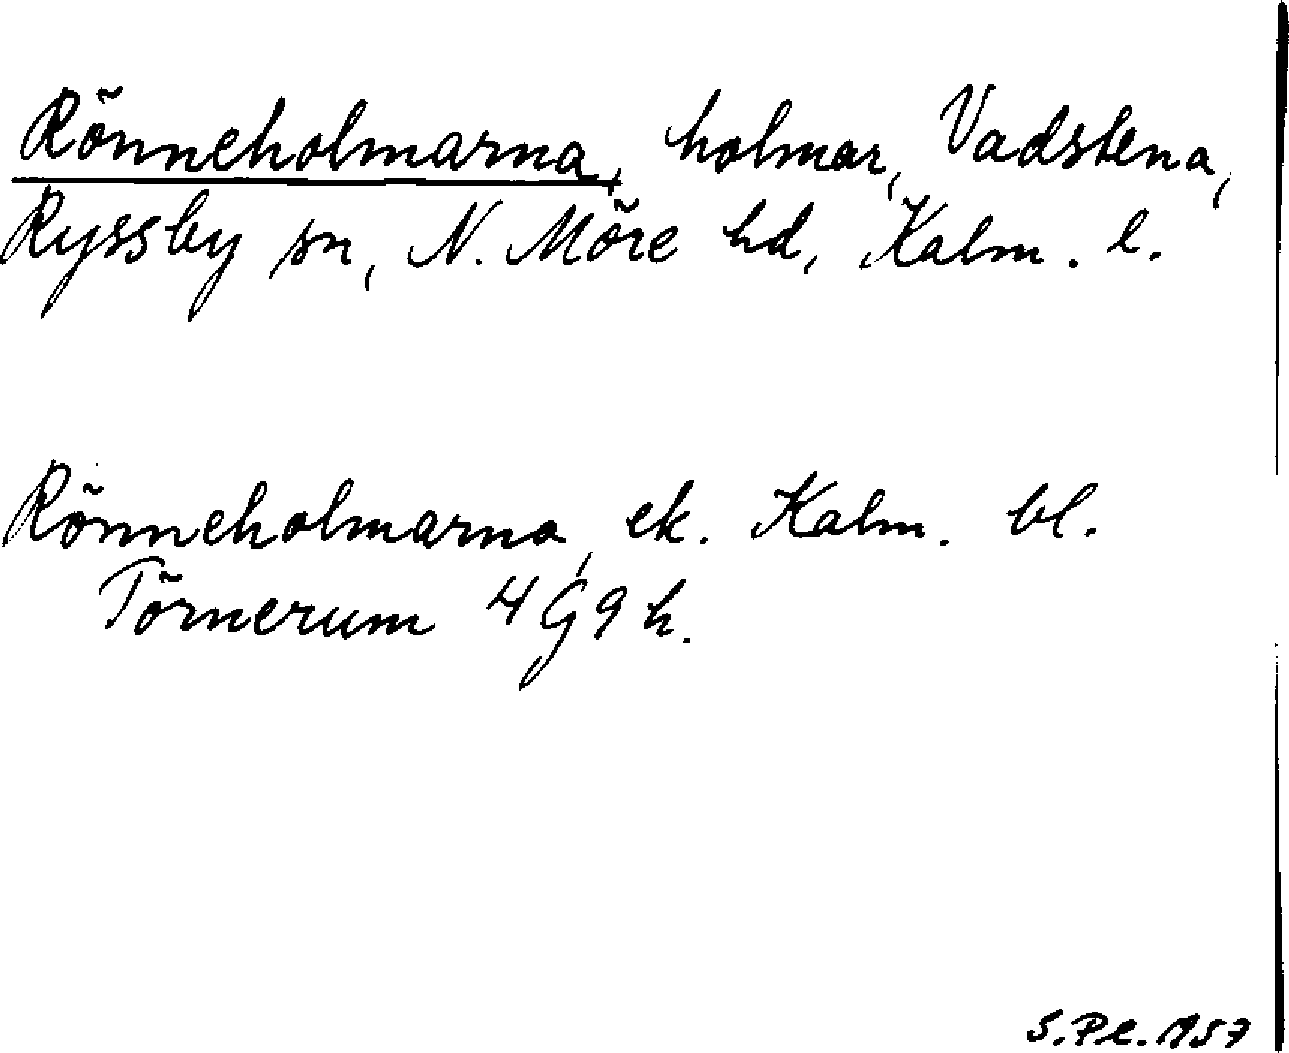 Rönneholmarna, holmar, Vadstena,
Ryssby sn, N. Möre hd, Kalm. l.
Rönneholmarna, ek. Kalm. bl.
Törnerum 4G9h.
S.Pe.1957